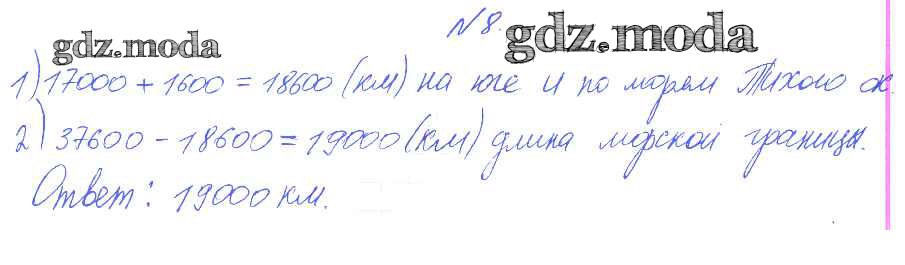 №8.
gdz.moda gdz.moda
1) 17000 + 1600 = 18600 (км) на юге и по морям Тихого ок.
2) 37600 - 18600 = 19000 (км) длина морской границы.
Ответ: 19000 км.